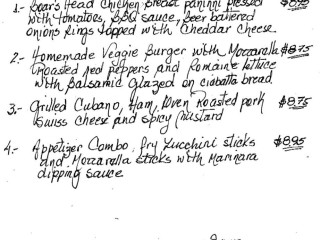 1.- Boar's Head Chicken Breast paninni pressed $8.95
with tomatoes, BBQ sauce, Beer battered
onions Rings topped with Cheddar Cheese
2.- Homemade Veggie Burger with Mozzarella $8.75
Roasted red peppers and Romaine lettuce
with Balsamic Glazed on ciabatta bread
3.- Grilled Cubano, Ham, Oven roasted pork $8.75
Swiss cheese and spicy mustard
4.- Appetizer Combo, fry Zucchini sticks $8.95
and Mozzarella sticks with Marinara
dipping sauce